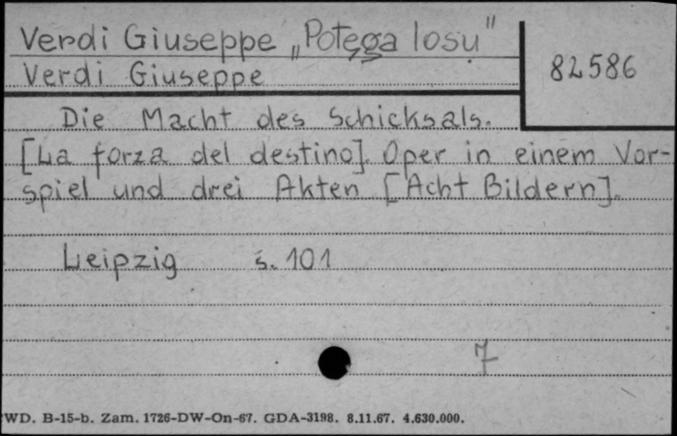 Verdi Giuseppe „Potęga losu"
82586
Verdi Giuseppe
Die Macht des Schicksals.
[La forza del destino]. Oper in einem Vor-
spiel und drei Akten [Acht Bildern].
Leipzig s. 101
7
WD. B-15-b. Zam. 1726-DW-On-67. GDA-3198. 8.11.67. 4.630.000.